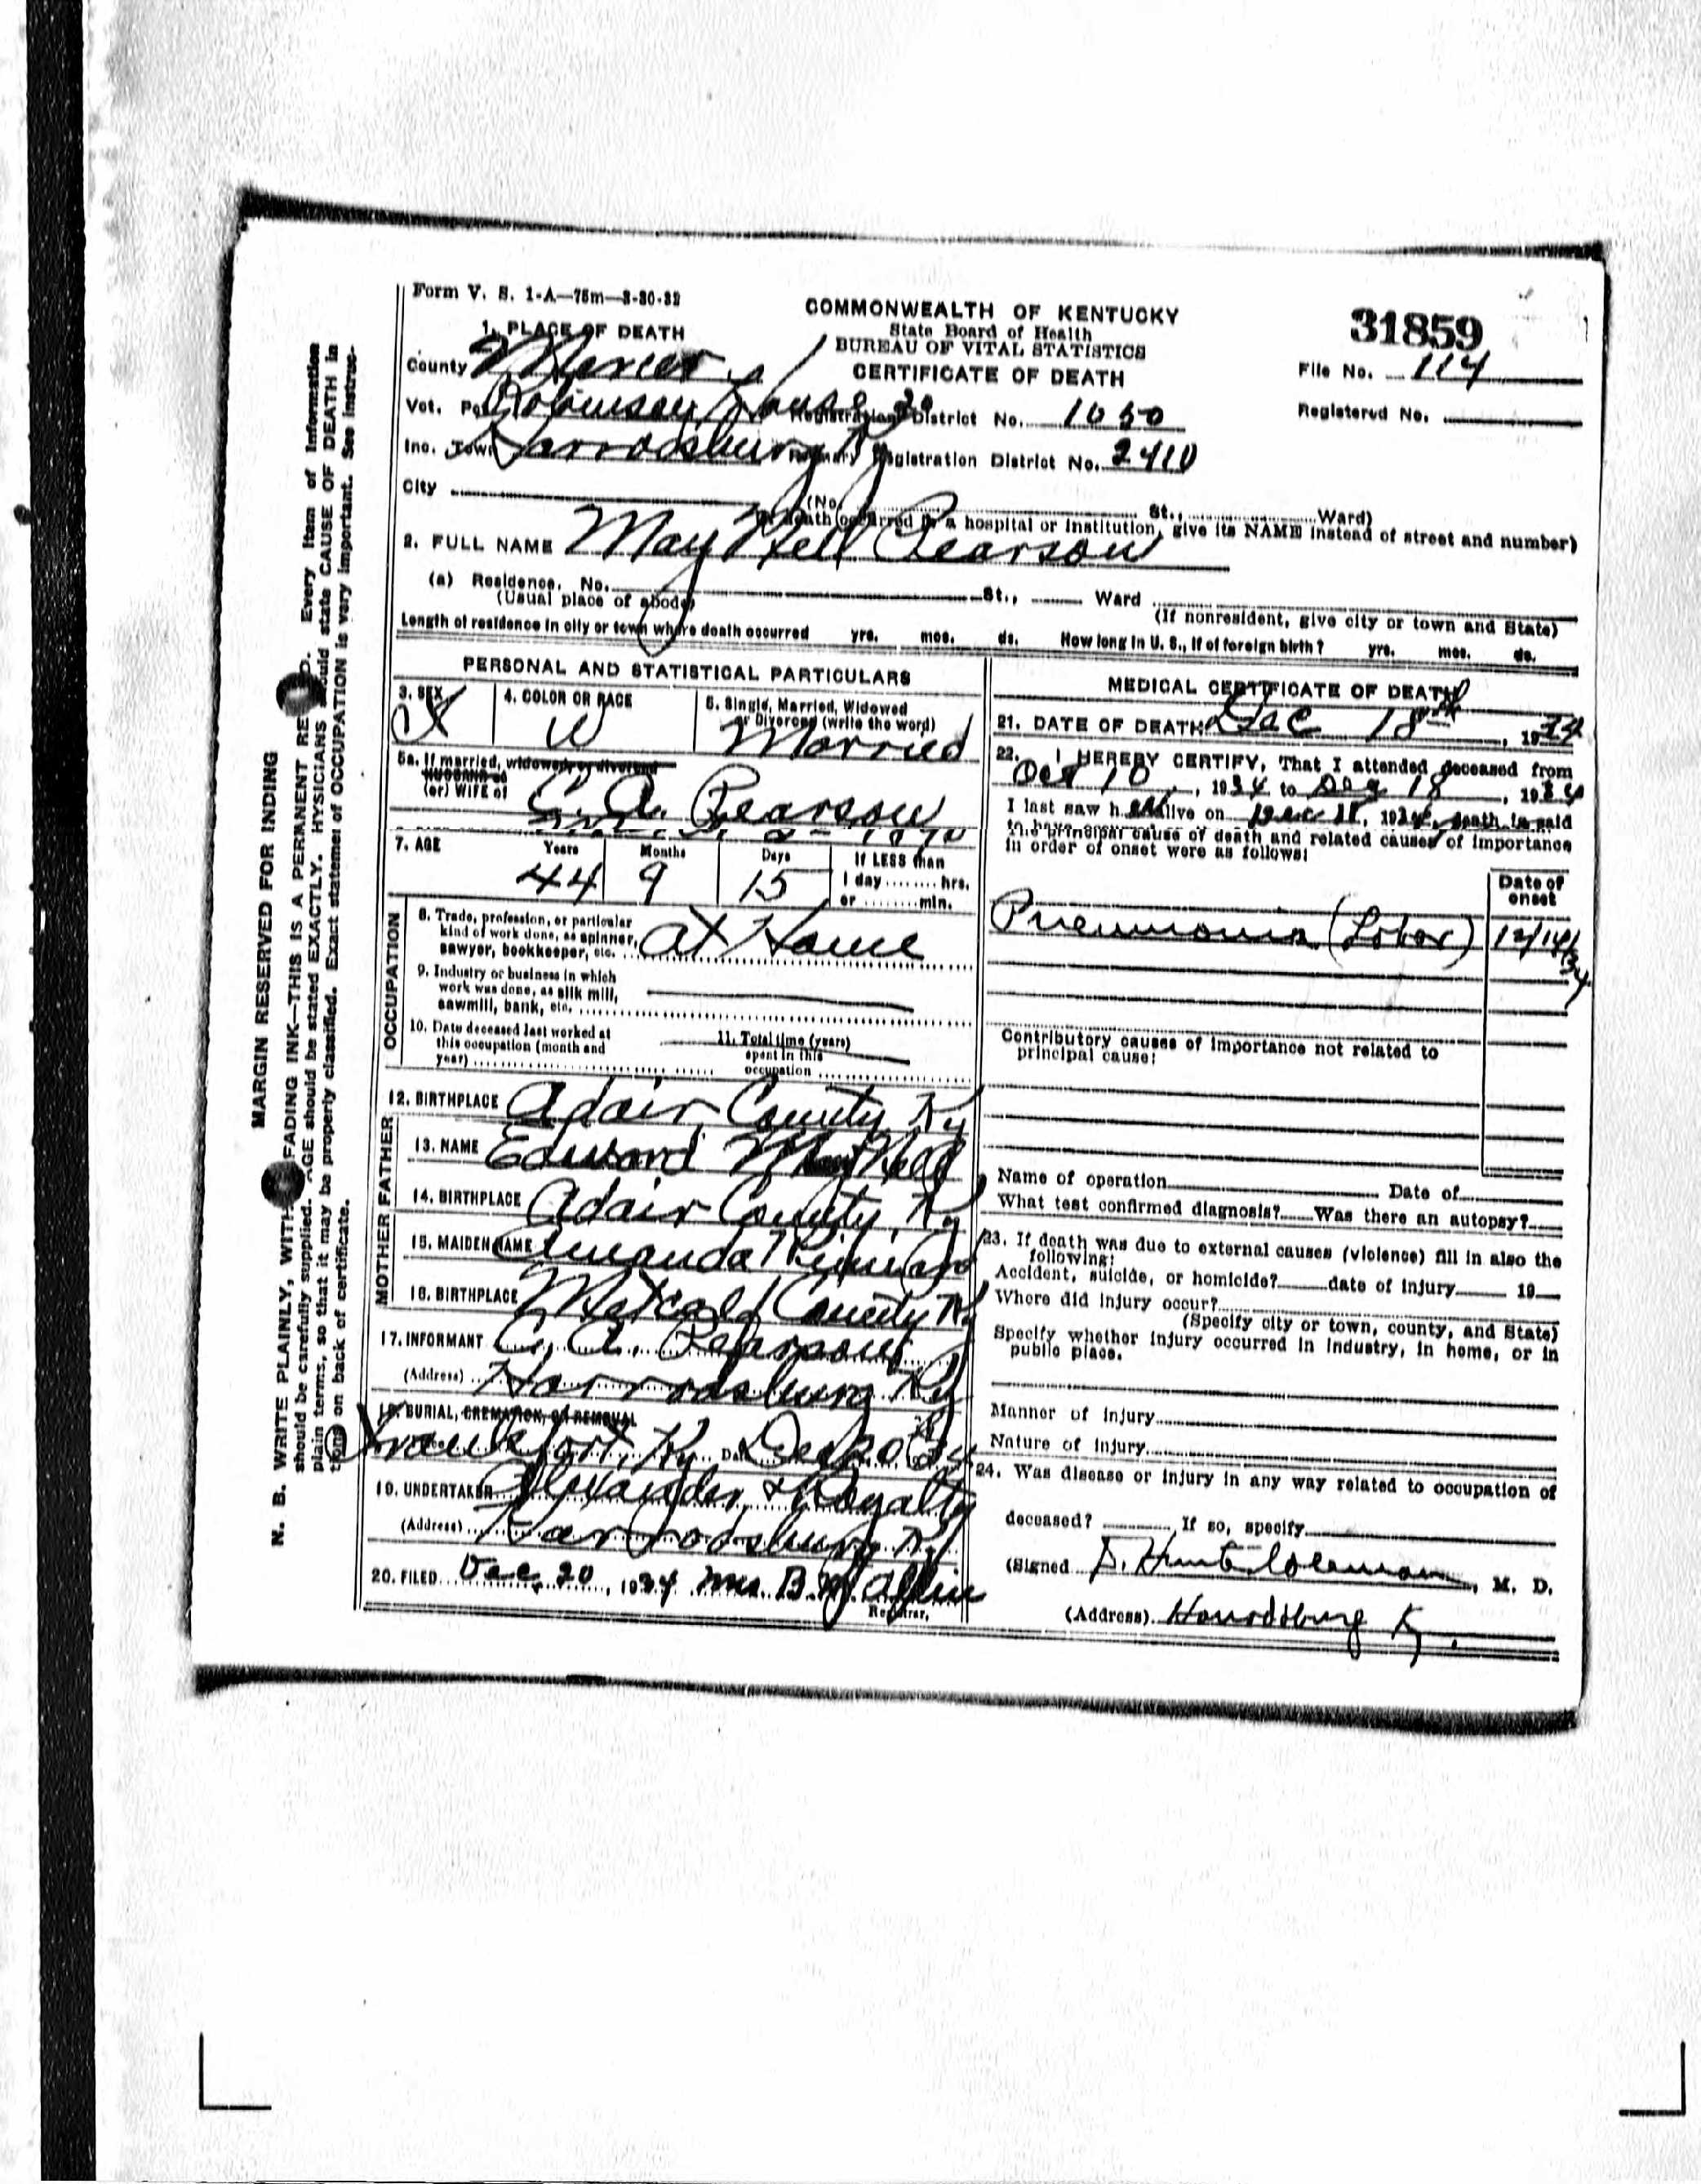 Form V. S. 1-A—75m—3-30-32
COMMONWEALTH OF KENTUCKY
State Board of Health
BUREAU OF VITAL STATISTICS
CERTIFICATE OF DEATH
31859
File No. 114
Registered No.
1. PLACE OF DEATH
County Mercer
Vot. Robinson House 20 Registration District No. 1050
Inc. Town Harrodsburg Ky Primary Registration District No. 2410
City (No. St., Ward)
death occurred in a hospital or institution, give its NAME instead of street and number)
2. FULL NAME May Nell Pearson
(a) Residence. No. St., Ward
(Usual place of abode) (If nonresident, give city or town and State)
Length of residence in city or town where death occurred yrs. mos. ds. How long in U. S., if of foreign birth? yrs. mos. ds.
PERSONAL AND STATISTICAL PARTICULARS
3. SEX
4. COLOR OR RACE W
5. Single, Married, Widowed
or Divorced (write the word)
Married
5a. If married, widowed, or divorced
HUSBAND of
(or) WIFE of C. A. Pearson
7. AGE Years Months Days If LESS than
44 9 15 1 day ........ hrs.
or ........ min.
OCCUPATION
8. Trade, profession, or particular
kind of work done, as spinner,
sawyer, bookkeeper, etc. At Home
9. Industry or business in which
work was done, as silk mill,
sawmill, bank, etc.
10. Date deceased last worked at
this occupation (month and
year)
11. Total time (years)
spent in this
occupation
12. BIRTHPLACE Adair County Ky
FATHER
13. NAME Edward
14. BIRTHPLACE Adair County, Ky
MOTHER
15. MAIDEN NAME Amanda
16. BIRTHPLACE Metcalf County Ky
17. INFORMANT C. A. Pearson
(Address) Harrodsburg Ky
18. BURIAL, CREMATION, OR REMOVAL
Frankfort, Ky. Dec 20 34
19. UNDERTAKER Alexander & Royalty
(Address) Harrodsburg Ky
20. FILED Dec. 20, 1934 Mrs. B. Allin
Registrar.
MEDICAL CERTIFICATE OF DEATH
21. DATE OF DEATH Dec 18th, 1934
22. I HEREBY CERTIFY, That I attended deceased from
Oct 10, 1934 to Dec 18, 1934
I last saw h er alive on Dec 18, 1934, death is said
The principal cause of death and related causes of importance
in order of onset were as follows:
Date of
onset
Pneumonia (Lobar) 12/14/34
Contributory causes of importance not related to
principal cause:
Name of operation Date of
What test confirmed diagnosis? Was there an autopsy?
23. If death was due to external causes (violence) fill in also the
following:
Accident, suicide, or homicide? date of injury 19
Where did injury occur?
(Specify city or town, county, and State)
Specify whether injury occurred in industry, in home, or in
public place.
Manner of Injury
Nature of Injury
24. Was disease or injury in any way related to occupation of
deceased? If so, specify
(Signed D. Hunt Coleman, M. D.
(Address) Harrodsburg Ky.
MARGIN RESERVED FOR INDING
N. B. WRITE PLAINLY, WITH FADING INK—THIS IS A PERMANENT RE D. Every item of information
should be carefully supplied. AGE should be stated EXACTLY. HYSICIANS ould state CAUSE OF DEATH in
plain terms, so that it may be properly classified. Exact statement of OCCUPATION is very important. See instruc-
tions on back of certificate.